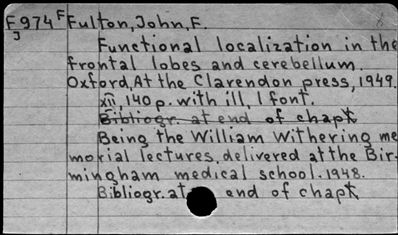 F974F Fulton, John, F.
J
Functional localization in the
frontal lobes and cerebellum.
Oxford, At the Clarendon press, 1949.
xii, 140 p. with ill, 1 font.
Bibliogr. at end of chapt.
Being the William Withering me
morial lectures, delivered at the Bir-
mingham medical school. 1948.
Bibliogr. at end of chapt.